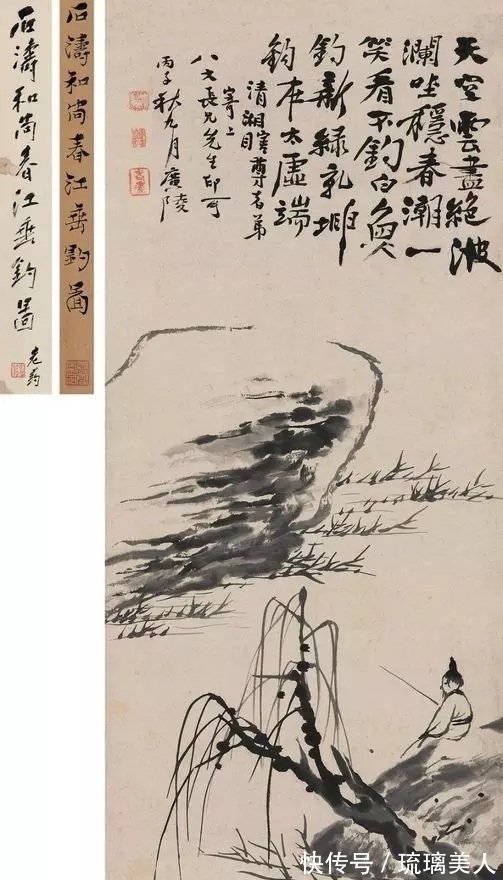 天空雲盡絕波
瀾坐穩春潮一
笑看不釣白魚
釣新綠乾坤
釣在太虛端
清湘瞎尊者弟
寄上
八大長兄先生印可
丙子秋九月廣陵
石濤和尚春江垂釣圖
石濤和尚春江垂釣圖
快传号 / 琉璃美人